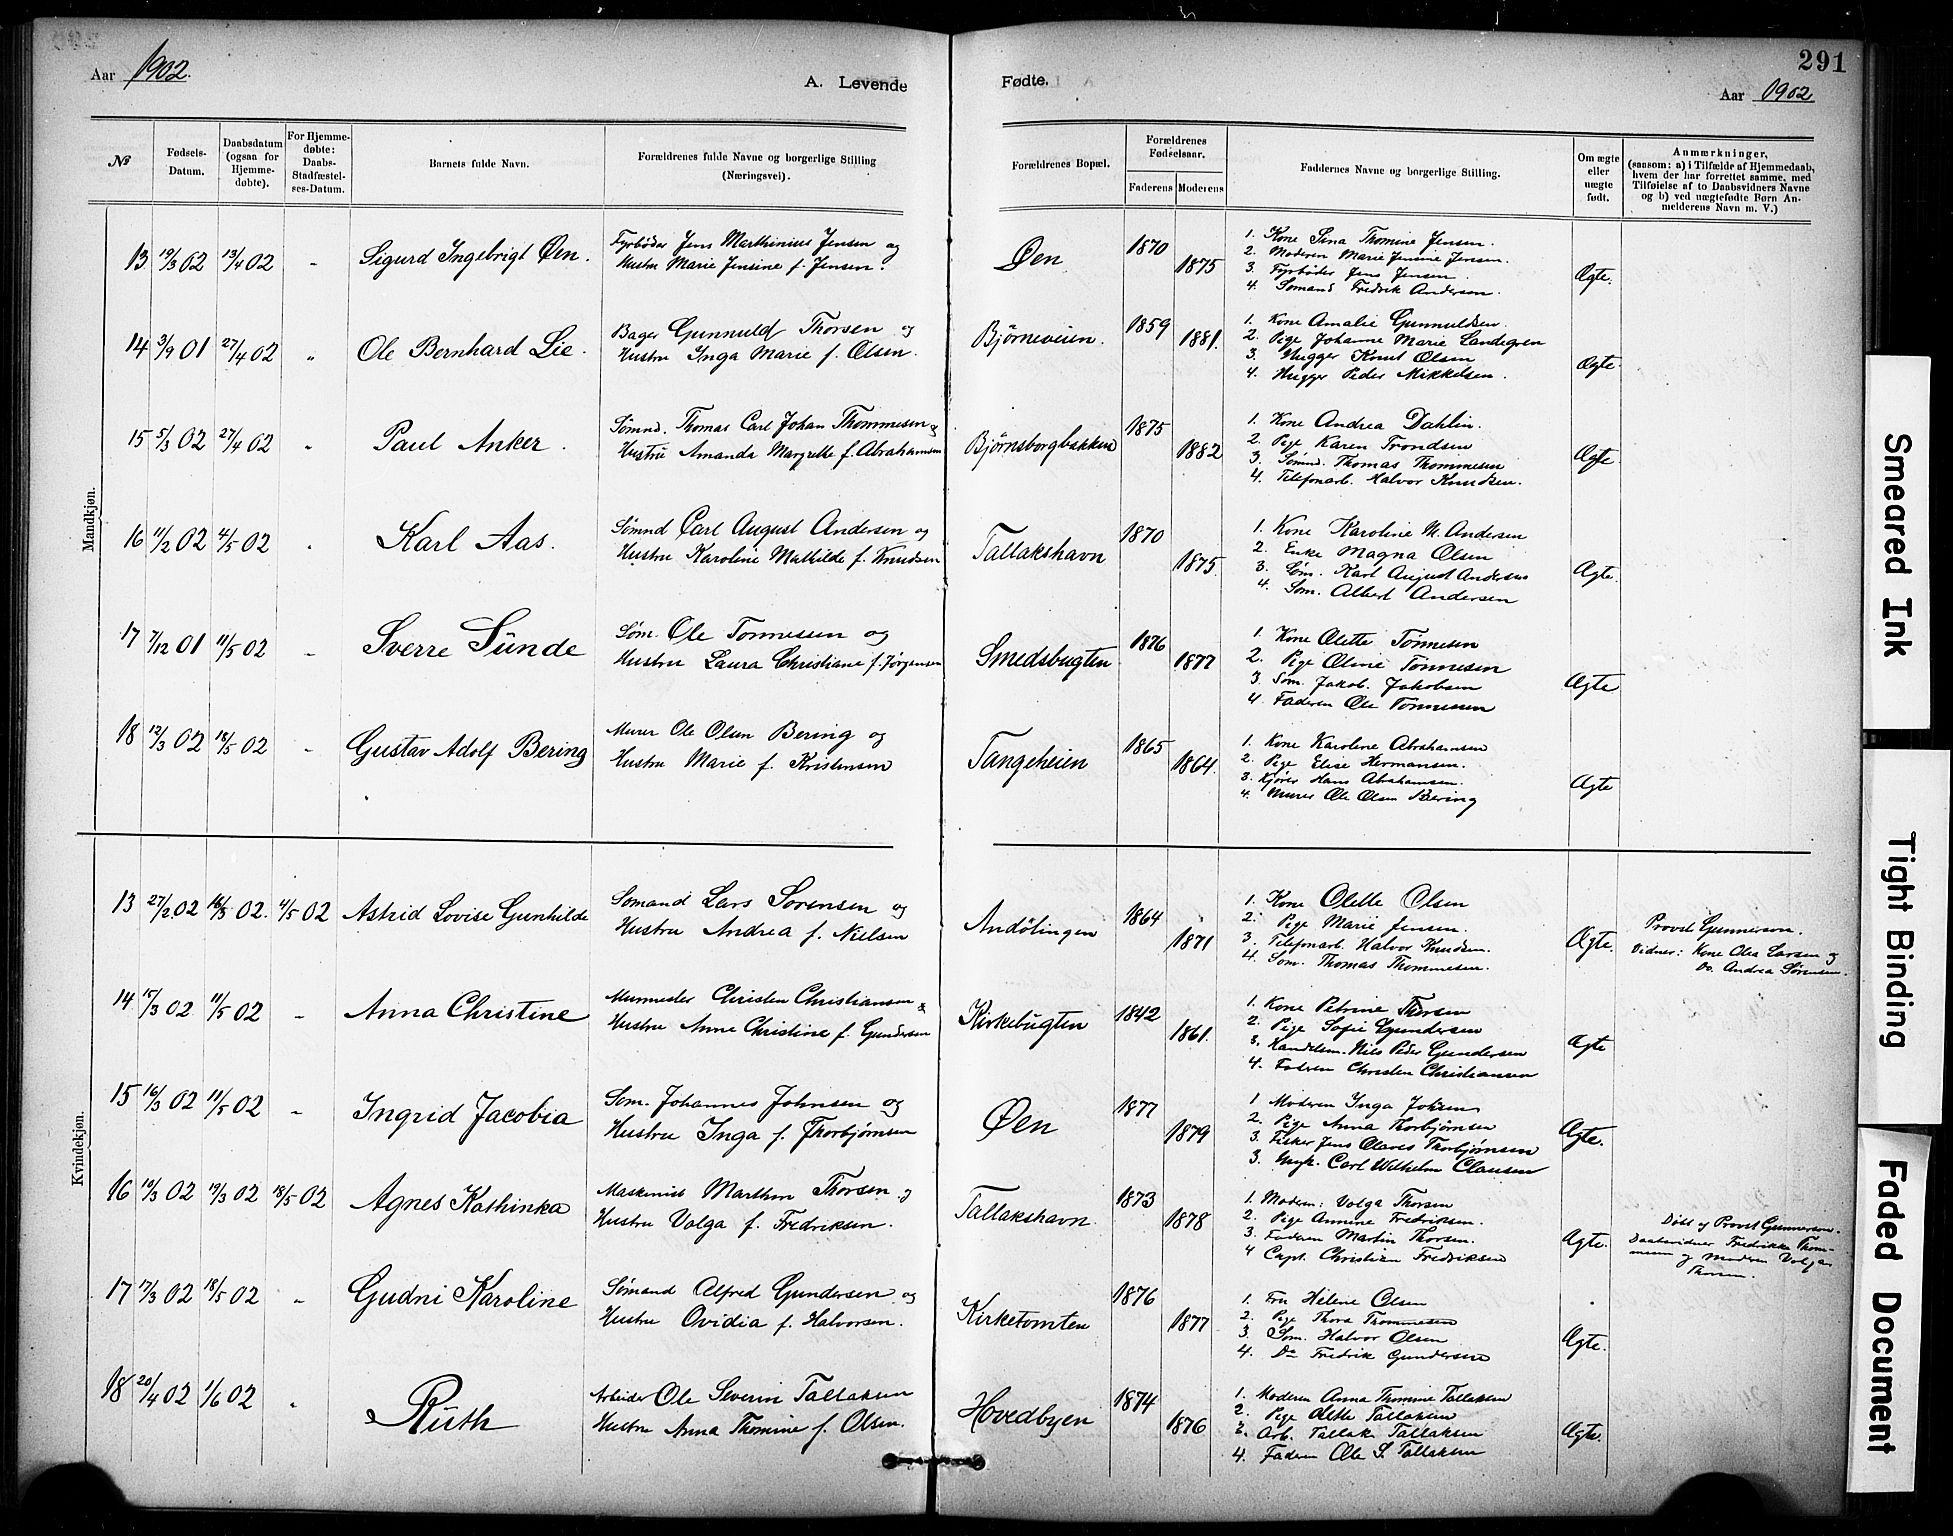 291
Aar 1902.
A. Levende
Fødte.
Aar 1902
№
Fødsels-Datum.
Daabsdatum (ogsaa for Hjemme-døbte).
For Hjemme-døbte: Daabs-Stadfæstel-ses-Datum.
Barnets fulde Navn.
Forældrenes fulde Navne og borgerlige Stilling (Næringsvei).
Forældrenes Bopæl.
Forældrenes Fødselsaar.
Faderens
Moderens
Faddernes Navne og borgerlige Stilling.
Om ægte eller uægte født.
Anmærkninger,
(saasom: a) i Tilfælde af Hjemmedaab,
hvem der har forrettet samme, med
Tilføielse af to Daabsvidners Navne
og b) ved uægtefødte Børn An-
melderens Navn m. V.)
Mandkjøn.
13 19/3 02 13/4 02 " Sigurd Ingebrigt Øen.
Fyrbøder Jens Marthinius Jensen og
Hustru Marie Jensine f. Jensen.
Øen 1870 1875
1. Kone Sina Thomine Jensen.
2. Moderen Marie Jensine Jensen.
3. Fyrbøder Jens Jensen.
4. Sømand Fredrik Andersen.
Ægte.
14 3/9 01 27/4 02 " Ole Bernhard Lie.
Bager Gunnuld Thorsen og
Hustru Inga Marie f. Olsen.
Bjørneveien. 1859 1881.
1. Kone Amalie Gunnuldsen.
2. Pige Johanne Marie Landegren
3. Hugger Knut Olsen
4. Hugger Peder Mikkelsen.
Ægte
15 5/3 02 27/4 02 " Paul Anker.
Sømnd. Thomas Carl Johan Thommesen &
Hustru Amanda Margrethe f. Abrahamsen
Bjørnsborgbakken 1875 1882
1. Kone Andrea Dahlin.
2. Pige Karen Trondsen
3. Sømnd. Thomas Thommesen
4. Telefonarb. Halvor Knudsen.
Ægte
16 11/2 02 4/5 02 " Karl Aas.
Sømnd Carl August Andersen og
Hustru Karoline Mathilde f. Knudsen
Tallakshavn 1870 1875.
1. Kone Karoline M. Andersen
2. Enke Magna Olsen
3. Søm. Karl August Andersen
4. Søm. Albert Andersen
Ægte.
17 7/12 01 11/5 02 " Sverre Sünde
Søm. Ole Tønnessen og
Hustru Laura Christiane f. Jørgensen
Smedsbugten 1876 1877
1. Kone Olette Tønnesen
2. Pige Oline Tønnesen
3. Søm. Jakob Jakobsen
4. Faderen Ole Tønnessen
Ægte
18 12/3 02 18/5 02 " Gustav Adolf Bering
Murer Ole Olsen Bering og
Hustru Marie f. Kristensen
Tangeheien 1865 1864.
1. Kone Karoline Abrahamsen
2. Pige Elise Hermansen.
3. Kjører Hans Abrahamsen.
4. Murer Ole Olsen Bering
Ægte
Kvindekjøn.
13 27/2 02 16/3 02. 4/5 02 Astrid Lovise Gunhilde
Sømand Lars Sørensen og
Hustru Andrea f. Nielsen
Andølingen 1864 1871
1. Kone Olette Olsen
2. Pige Marie Jensen.
3. Telefonarb. Halvor Knudsen.
4. Søm. Thomas Thommesen.
Ægte.
Provst Gunnerson.
Vidner: Kone Olea Larsen og
Do. Andrea Sørensen.
14 15/3 02 11/5 02 " Anna Christine
Christen Christiansen &
Hustru Anne Christine f. Gundersen
Kirkebugten 1842 1861.
1. Kone Petrine Thorsen
2. Pige Sofie Gundersen
3. Handelsm. Nils Peder Gundersen
4. Faderen Christen Christiansen
Ægte
15 16/3 02 11/5 02 " Ingrid Jacobia
Søm. Johannes Johnsen og
Hustru Inga f. Thorbjørnsen
Øen 1877 1879
1 Moderen Inga Johnsen
2. Pige Anna Thorbjørnsen
3. Fisker Jens Olaves Thorbjørnsen
3. Carl Wilhelm Clausen
Ægte.
16 10/3 02 19/3 02 18/5 02 Agnes Kathinka
Maskinist Marthin Thorsen og
Hustru Volga f. Fredriksen.
Tallakshavn. 1873 1878
1. Moderen: Volga Thorsen
2. Pige Annine Fredriksen.
3. Faderen Martin Thorsen.
4 Capt. Christian Fredriksen
Ægte.
Døbt af Provst Gunnerson.
Daabsvidner Fredrikke Thom-
mesen og Moderen Volga
Thorsen.
17 17/3 02 18/5 02 " Gudni Karoline
Sømand Alfred Gundersen og
Hustru Ovidia f. Halvorsen.
Kirketomten 1876 1877
1. Fru Helene Olsen
2. Pige Thora Thommesen
3. Søm. Halvor Olsen
4. Do Fredrik Gundersen
Ægte.
18 20/4 02 1/6 02 " Rüth
Arbeider Ole Severin Tallaksen
Hustru Anna Thomine f. Olsen.
Hovedbyen 1874 1876
1. Moderen Anna Thomine Tallaksen
2. Pige Olette Tallaksen
3. Arb. Tallak Tallaksen
4. Faderen Ole S. Tallaksen
Ægte.
Smeared Ink
Tight Binding
Faded Document